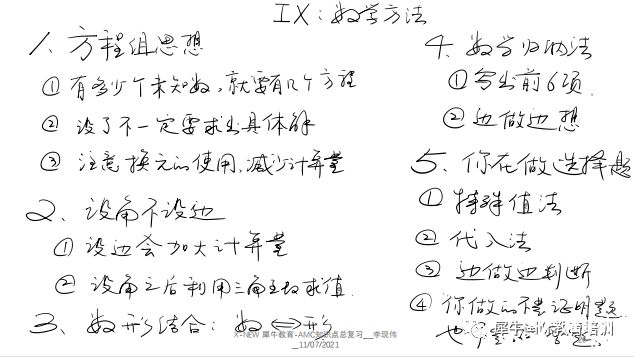 IX: 数学方法
1、方程组思想
① 有多少个未知数,就要有几个方程
② 设了不一定要求出具体解
③ 注意换元的使用,减少计算量
2、设角不设边
① 设边会加大计算量
② 设角之后利用三角函数求值
3、数形结合: 数⇔形
4、数学归纳法
① 写出前6项
② 边做边想
5、你在做选择题
① 特殊值法
② 代入法
③ 边做边判断
④ 你做的不是证明题
也
X-NEW 犀牛教育-AMC知识点总复习__李现伟
__11/07/2021
犀牛国际教育培训